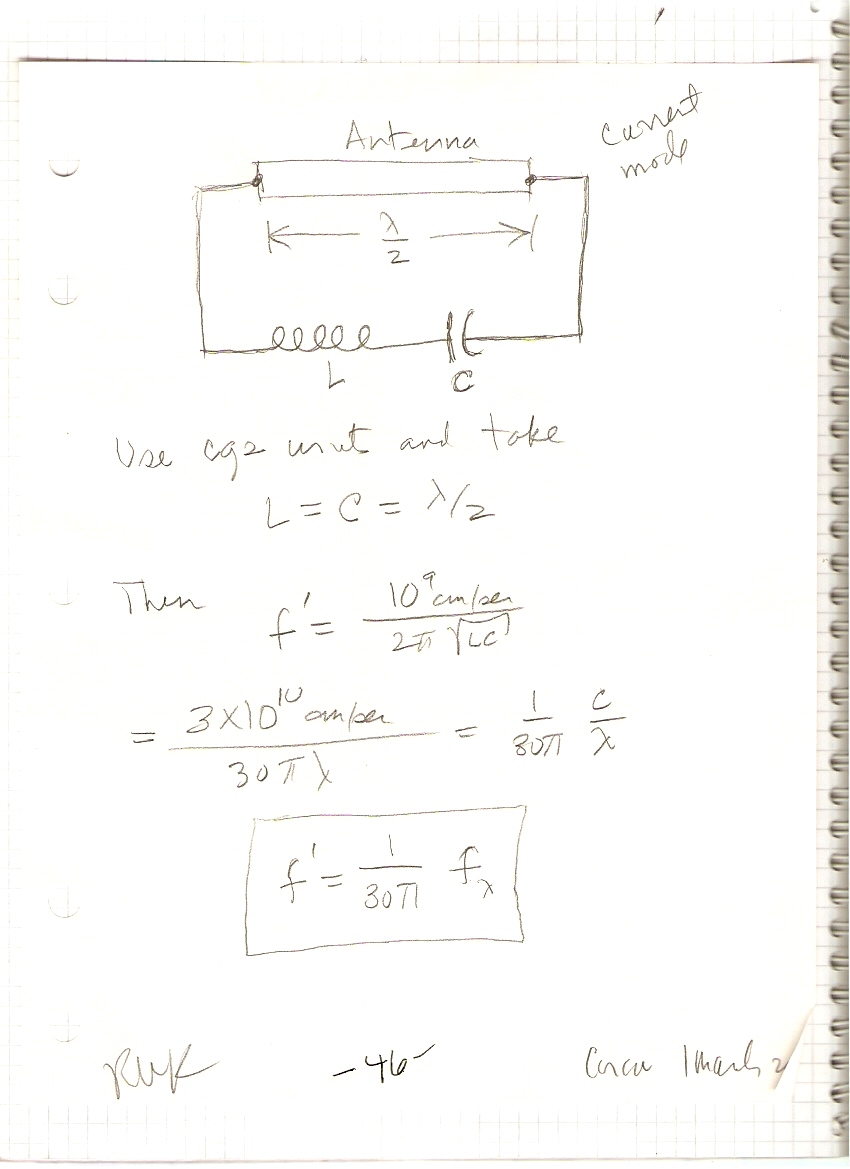 Antenna
Current
mode
λ/2
L
C
Use cgs unit and take
L = C = λ/2
Then f' = 10⁹ cm/sec / 2π √LC
= 3×10¹⁰ cm/sec / 30πλ = 1/30π c/λ
f' = 1/30π f_λ
RWK -46- Circa 1 March